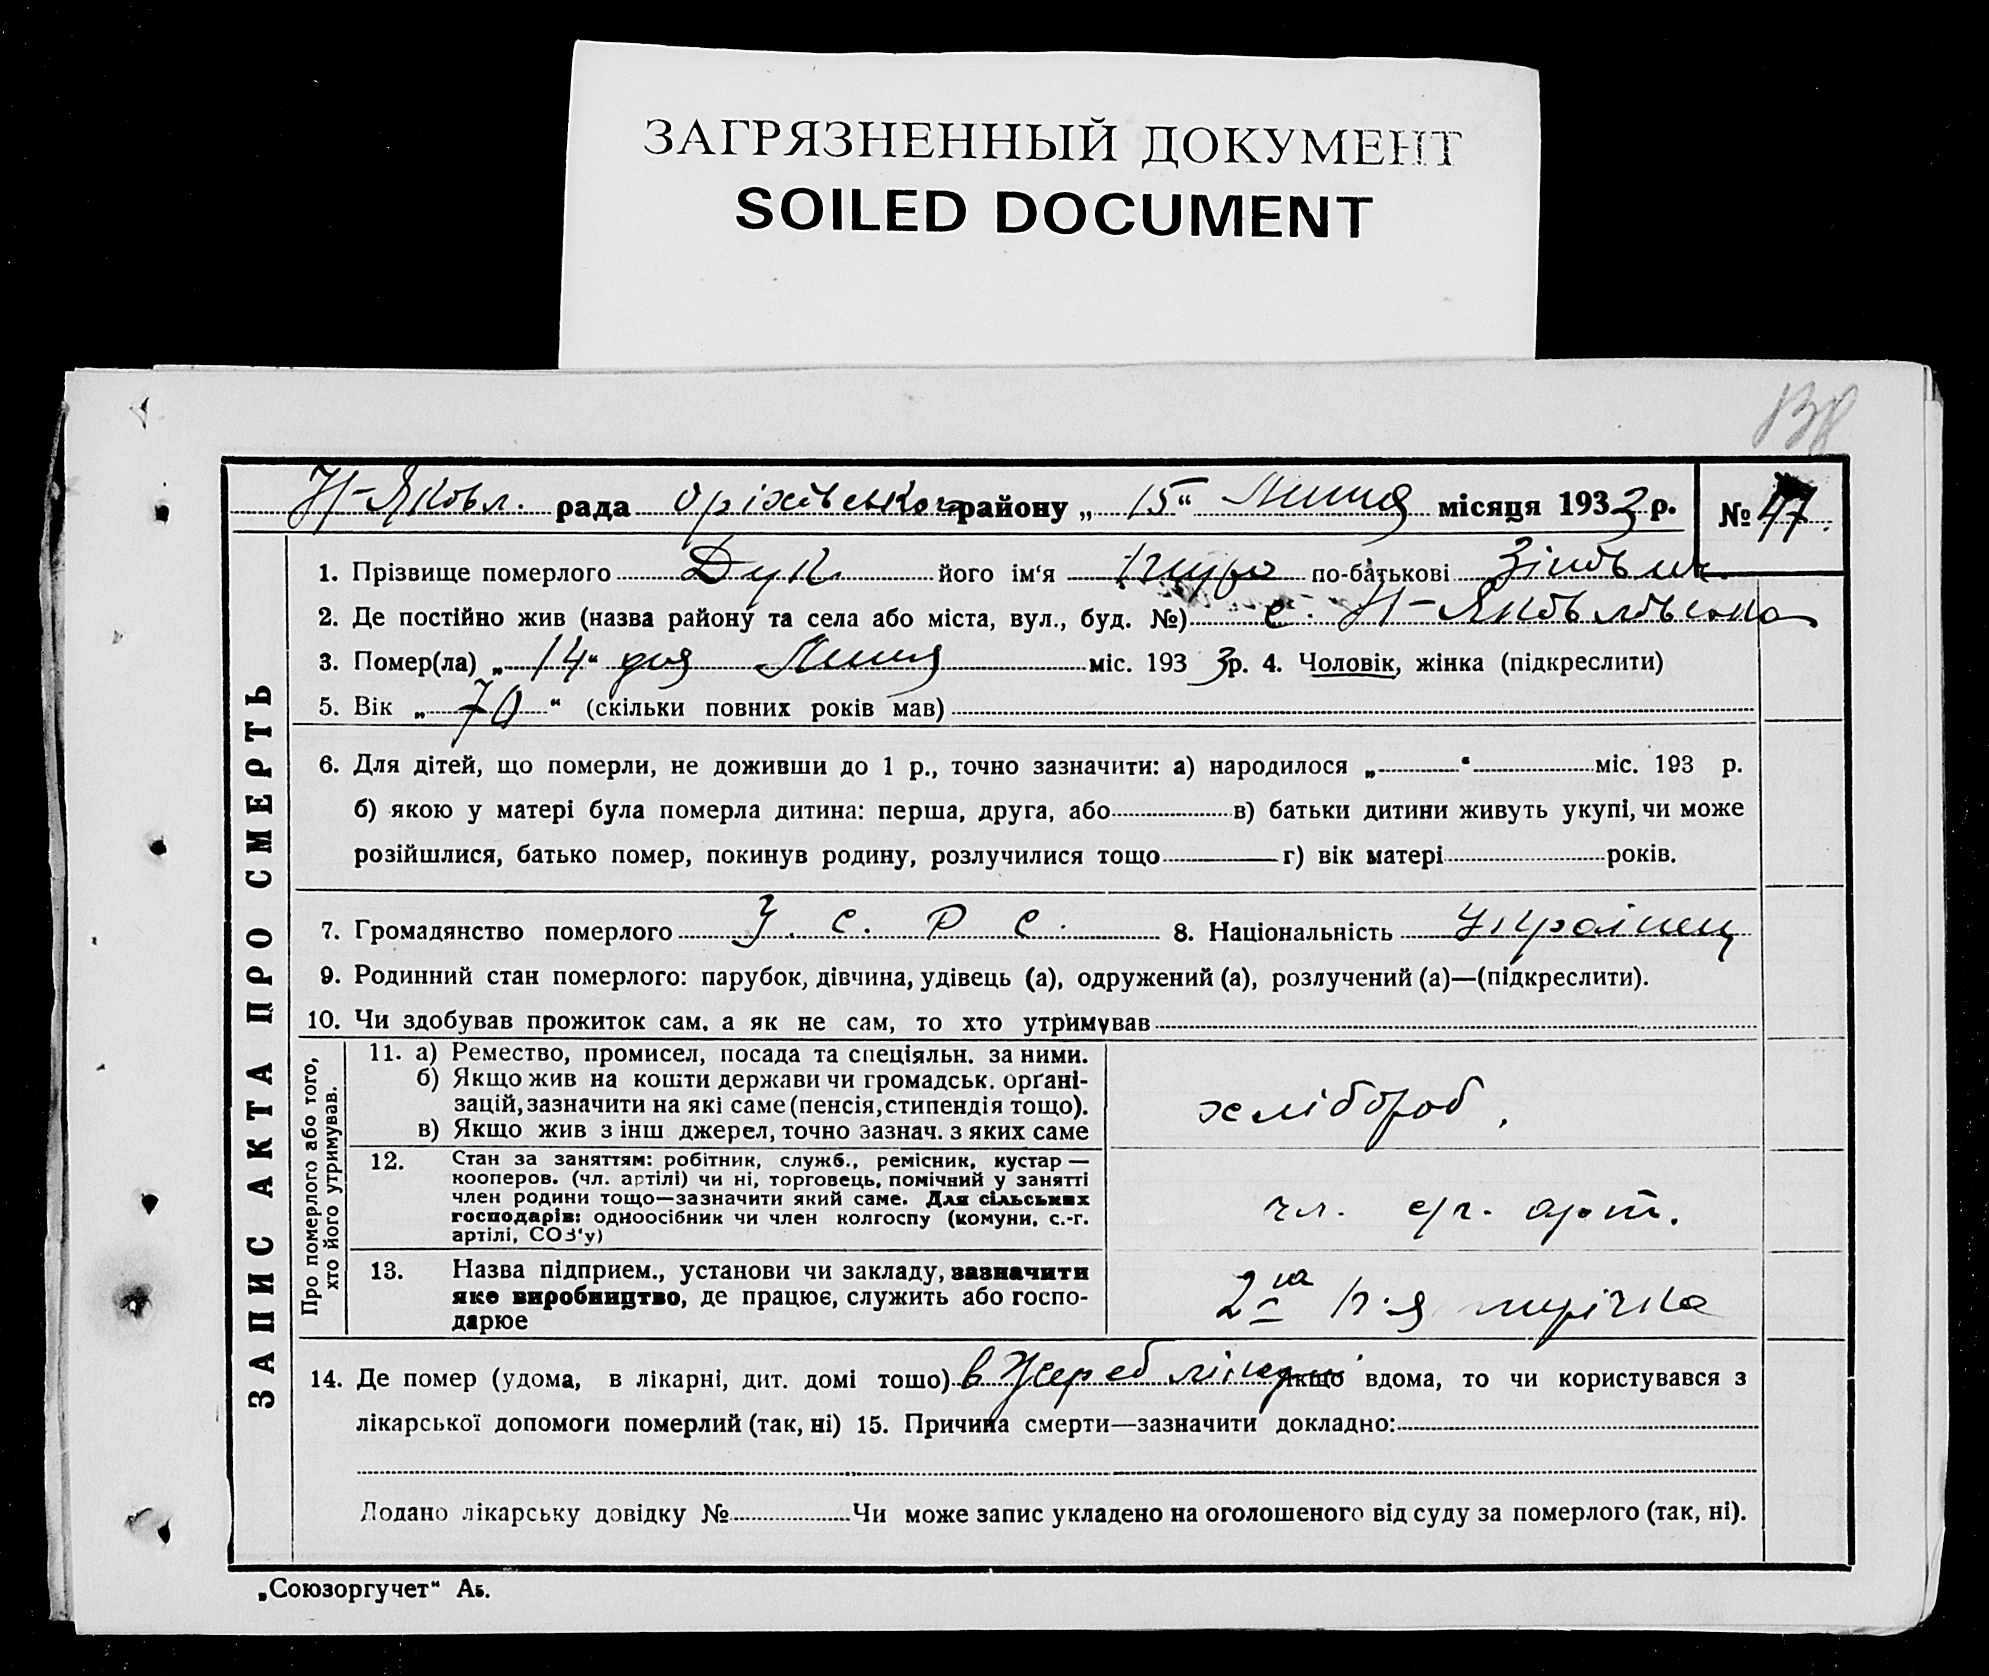 ЗАГРЯЗНЕННЫЙ ДОКУМЕНТ
SOILED DOCUMENT
Н-Яковл. рада Оріхівського району „ 15 “ Липня місяця 1933 р. № 47
1. Прізвище померлого Дук його ім‘я по-батькові
2. Де постійно жив (назва району та села або міста, вул., буд. №) с. Н-Яковлівська
3. Помер(ла) „ 14 “ дня Липня міс. 193 3 р. 4. Чоловік, жінка (підкреслити)
5. Вік „ 70 “ (скільки повних років мав)
6. Для дітей, що померли, не доживши до 1 р., точно зазначити: а) народилося „ “ міс. 193 р.
б) якою у матері була померла дитина: перша, друга, або в) батьки дитини живуть укупі, чи може
розійшлися, батько помер, покинув родину, розлучилися тощо г) вік матері років.
7. Громадянство померлого У. С. Р С. 8. Національність Українец
9. Родинний стан померлого: парубок, дівчина, удівець (а), одружений (а), розлучений (а)—(підкреслити).
10. Чи здобував прожиток сам, а як не сам, то хто утримував
ЗАПИС АКТА ПРО СМЕРТЬ
Про померлого або того,
хто його утримував.
11. а) Ремество, промисел, посада та спеціяльн. за ними.
б) Якщо жив на кошти держави чи громадськ. орґані-
зацій, зазначити на які саме (пенсія, стипендія тощо).
в) Якщо жив з інш джерел, точно зазнач. з яких саме
хлібороб.
12. Стан за заняттям: робітник, служб., ремісник, кустар —
кооперов. (чл. артілі) чи ні, торговець, помічний у занятті
член родини тощо—зазначити який саме. Для сільських
господарів: одноосібник чи член колгоспу (комуни, с.-г.
артілі, СОЗ‘у)
чл. с/г. арт.
13. Назва підприєм., установи чи закладу, зазначити
яке виробництво, де працює, служить або госпо-
дарює
2га п-я
14. Де помер (удома, в лікарні, дит. домі тошо) в Якщо вдома, то чи користувався з
лікарської допомоги померлий (так, ні) 15. Причина смерти—зазначити докладно:
Додано лікарську довідку № Чи може запис укладено на оголошеного від суду за померлого (так, ні).
„Союзоргучет“ Аб.